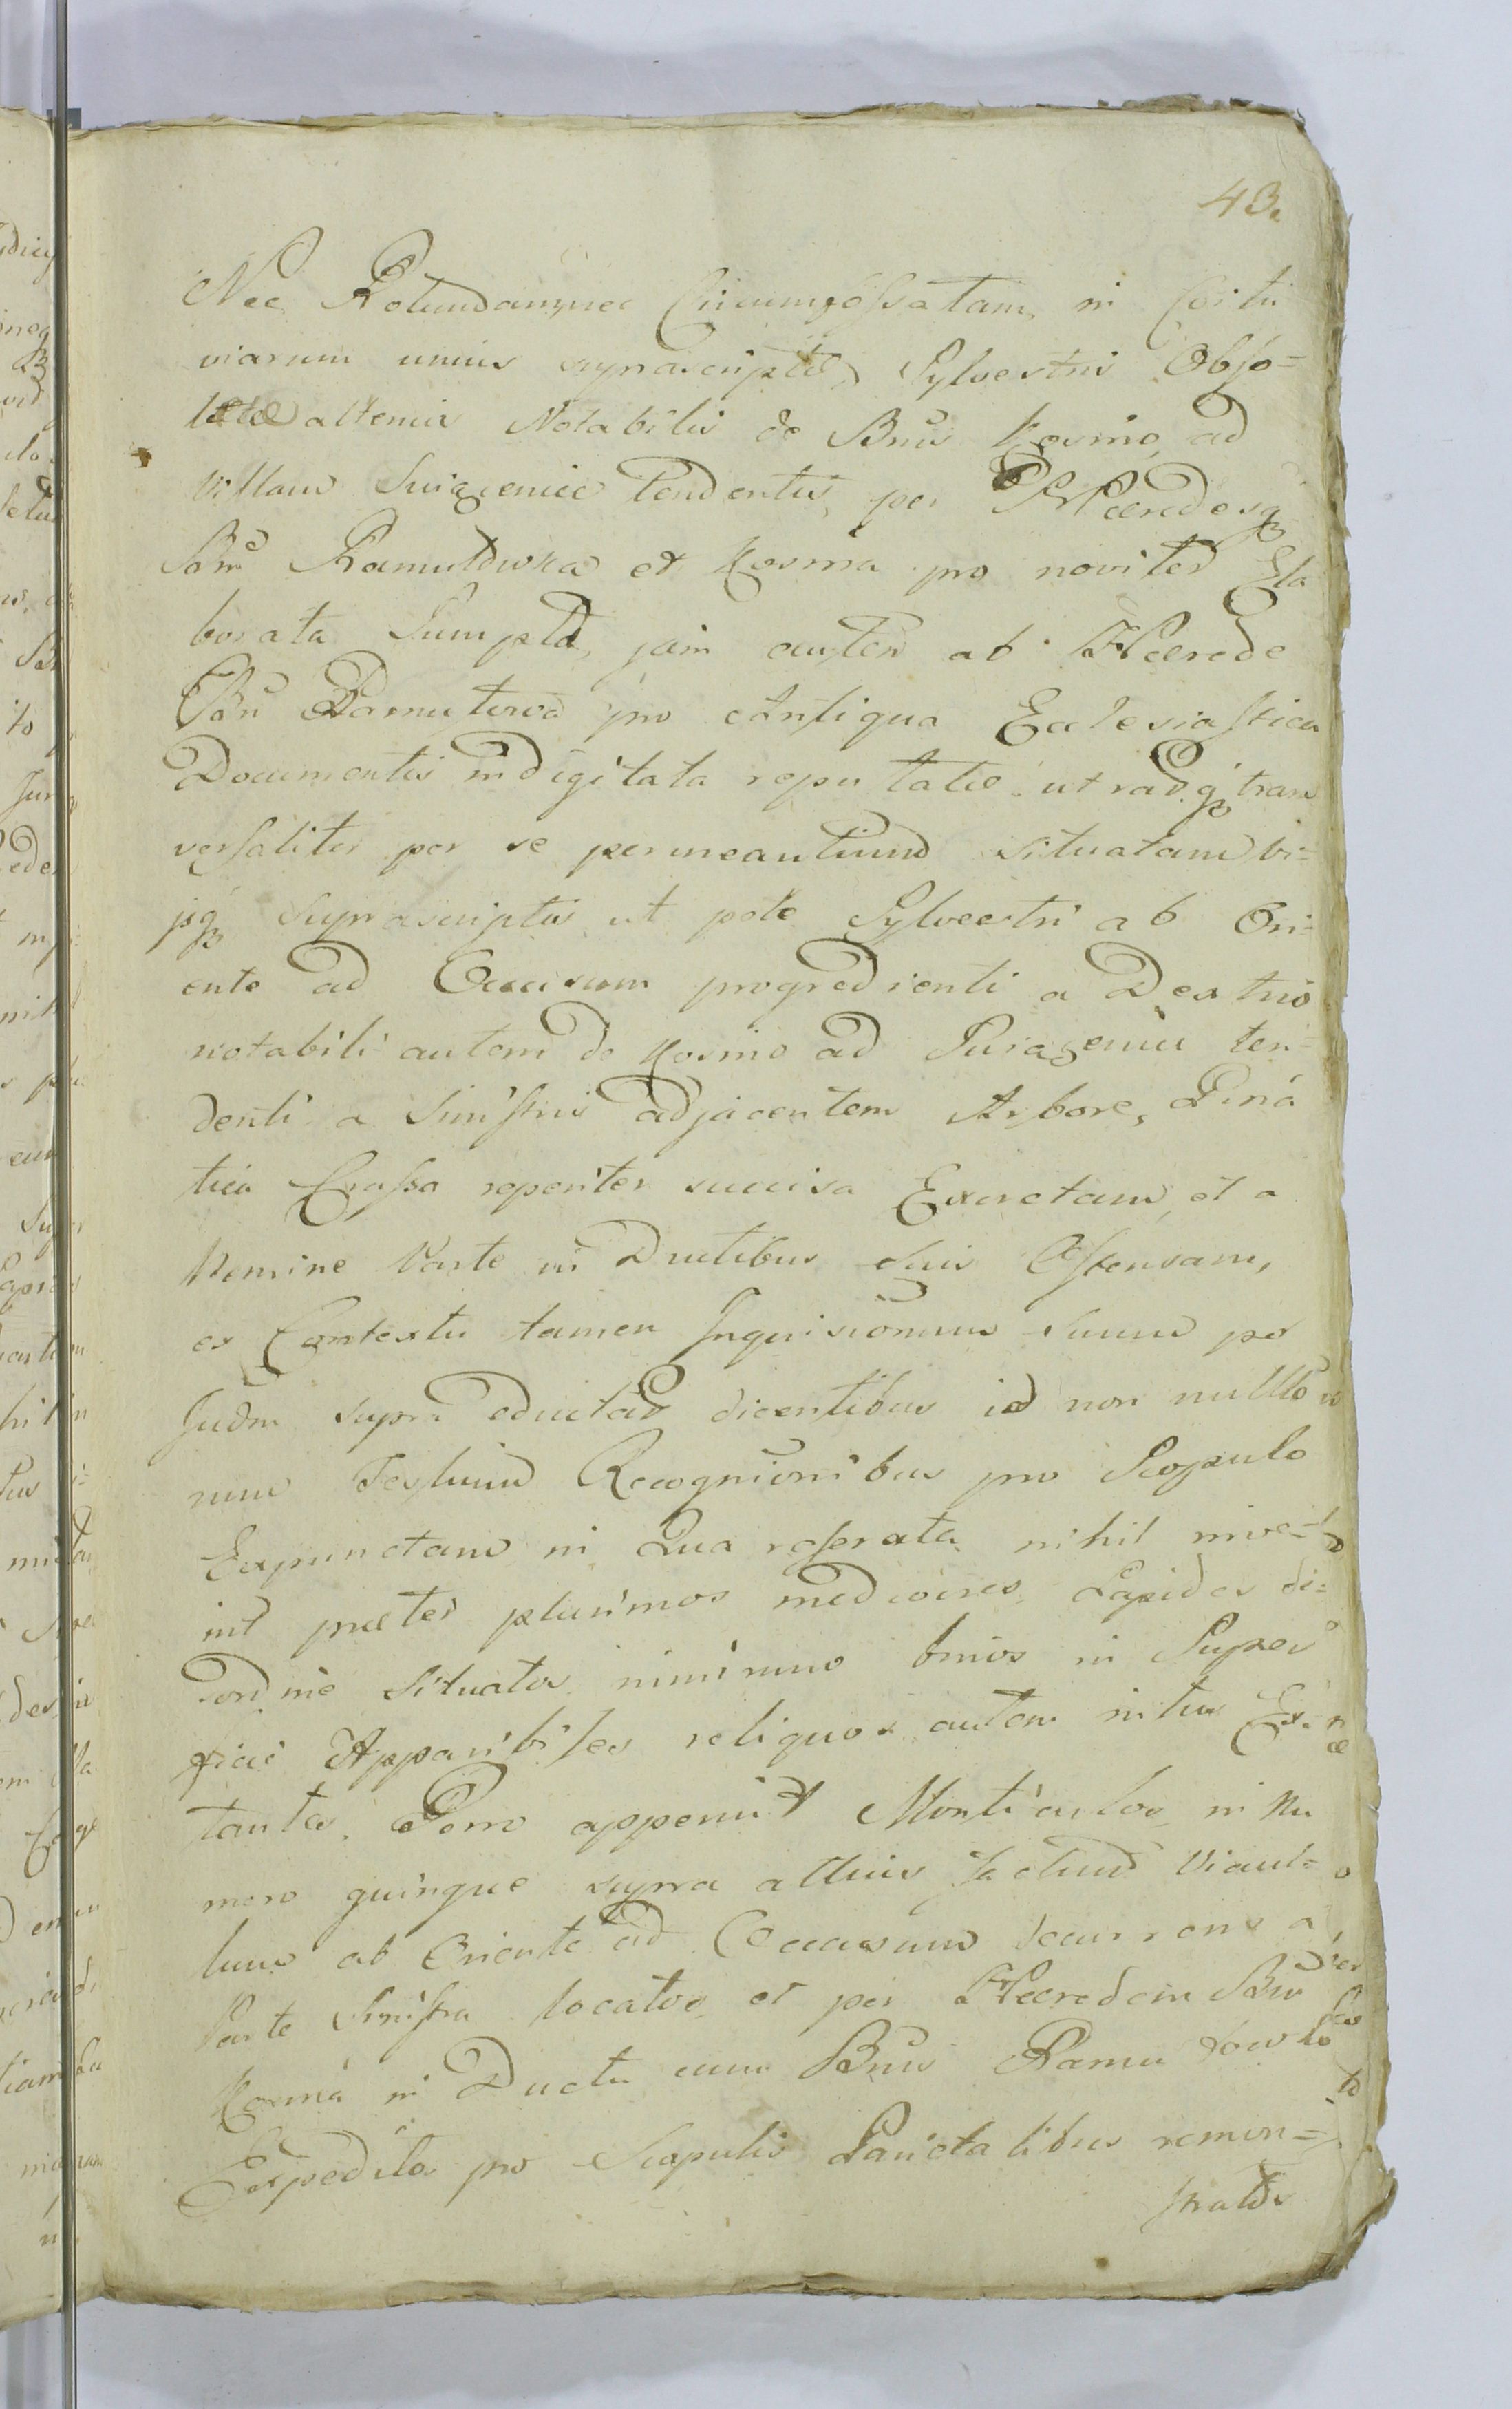 43.
Nec Rotundam, nec Circumfossatam, in Coitu
viarum unius suprascriptæ Sylvestris Obso=
letæ alterius Notabilis de Bnis Kosmo ad
Villam Suiazenice tendentis, per Hæredesq
Bnr Ramultowka et Kosma pro noviter Ela
borata Sumptæ, jam autem ab Hærede
Bnr Ramultowa pro Antiqua Ecclesiastica
Documentis indigitata reputatæ utradq trans
versaliter per se permeantium situatam vi=
jsq Suprascriptis ut pote Sylvestri ab Ori=
ente ad Occasum progredienti a Dextris
notabili autem de Kosmo ad Suiazenice ten=
denti a Sinistris adjacentem Arbore, Pina
tica Crassa repenter succisa Excretam, et a
Nemine Parte in Ductibus Suis Ostensam,
ex Contextu tamen Inquisitionum Suum per
Judm supra eductar dicentibus id non nullo
rum Testium Recognionibus pro Scopulo
Expunctam in Qua reserata nihil inve=
nit præter plurimos mediocres Lapides di=
ordine Situatos nimirum binos in Super
ficie Apparibiles reliquos autem intus Ex=
tantes. Porro apperuit Monticulos in Nu
mero quinque supra alterius factum Viaul=
lum ab Oriente ad Occasum decurrens a
Parte Sinistra locatos et per Hæredem Bnr
Kosma in Ductu cum Bnis Ramultowka
Expedito pro Scopulis Parietalibus remon=
stratos